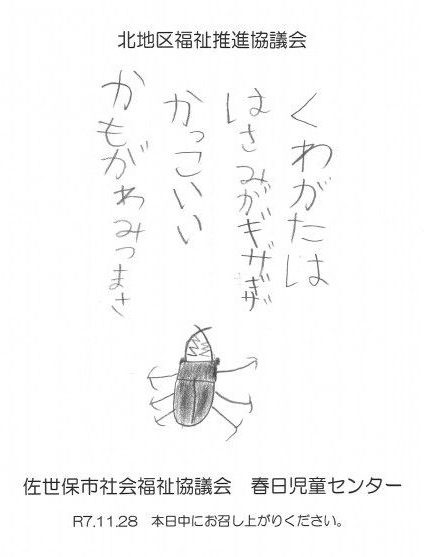 北地区福祉推進協議会
くわがたは
はさみがギザギザ
かっこいい
かもがわみつまさ
佐世保市社会福祉協議会　春日児童センター
R7.11.28　本日中にお召し上がりください。